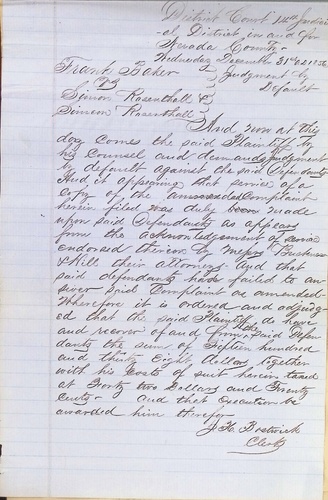 District Court 14th Judici
al District, in and for
Nevada County
Wednesday December 31st AD 1856
Frank Baker } Judgment by
vs } Default
Simon Rosenthall &
Simeon Rosenthall
And now at this
day comes the said Plaintiff by
his Counsel and demands judgment
by default against the said Defendants
And it appearing that service of a
copy of the amended Complaint
herein filed was duly made
upon said Defendants as appears
from the acknowledgement of service
endorsed thereon by Messrs
& Hills their Attorneys And that
said defendants have failed to an
swer said Complaint as amended
Wherefore it is ordered and adjudg
ed that the said Plaintiff do have
and recover of and from said Defen
dants the sum of Fifteen hundred
and thirty Eight dollars together
with his Costs of suit herein taxed
at Forty two Dollars and Twenty
Cents - and that execution be
awarded him therefor
Bostwick
Clerk